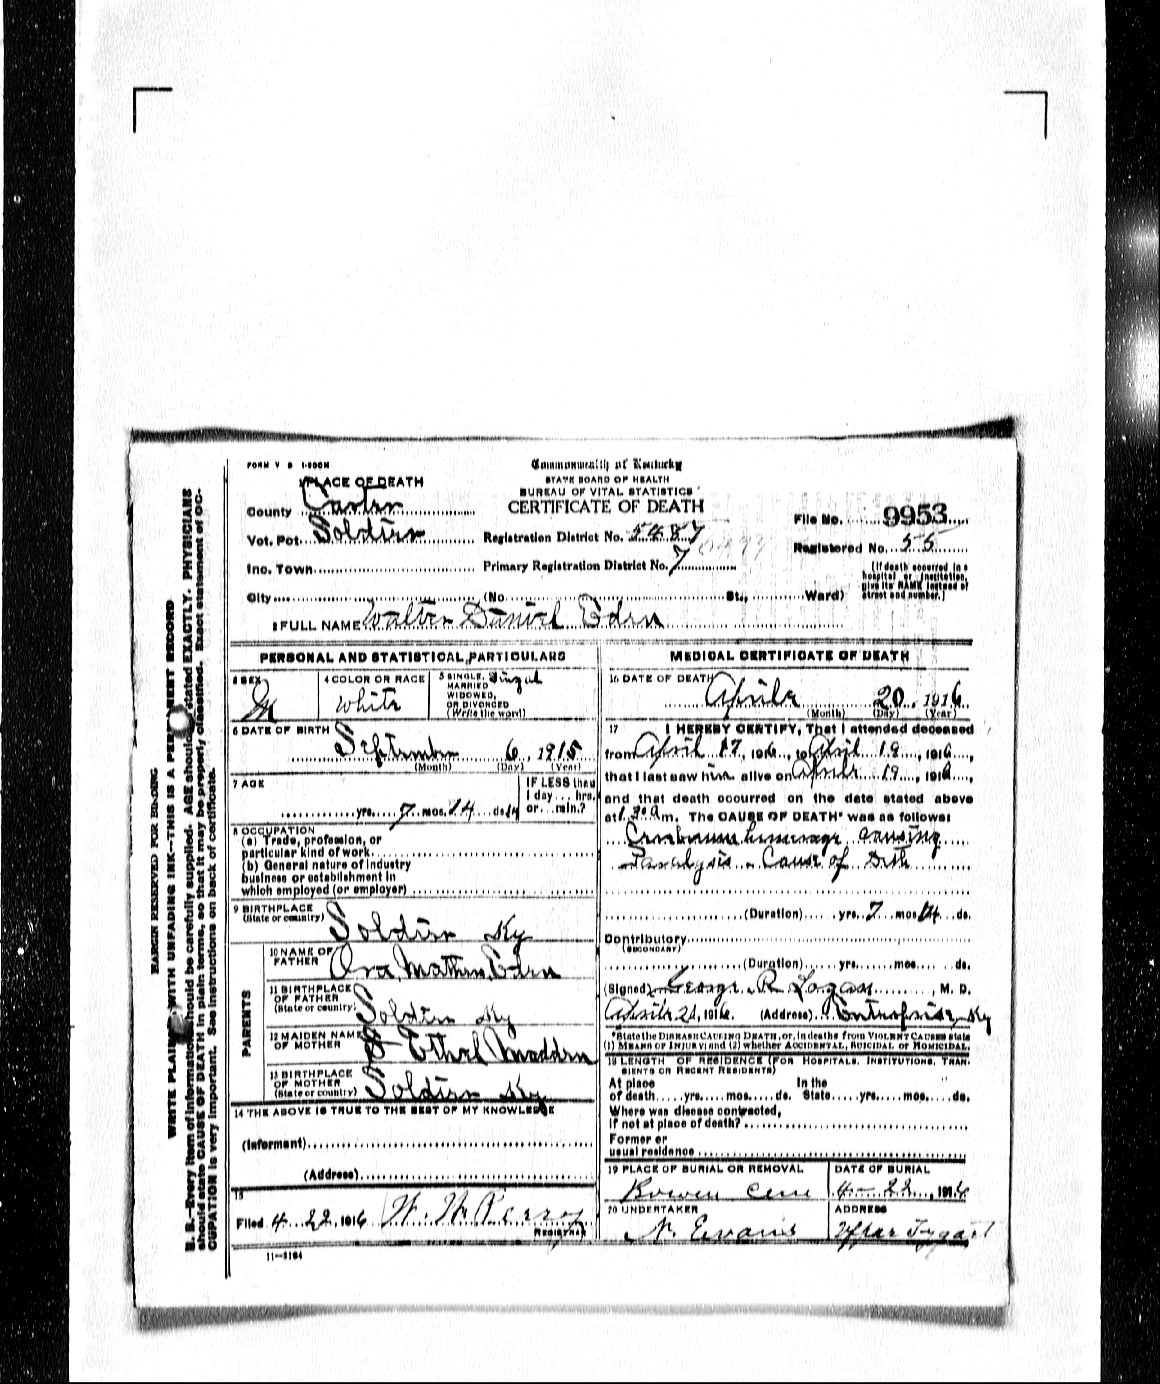 FORM V S 1-500M
Commonwealth of Kentucky
STATE BOARD OF HEALTH
BUREAU OF VITAL STATISTICS
CERTIFICATE OF DEATH
1 PLACE OF DEATH
County Carter
Vot. Pct. Soldier
Inc. Town
City (No. St., Ward)
Registration District No. 5487
Primary Registration District No. 7
File No. 9953
Registered No. 55
[If death occurred in a
hospital or institution,
give its NAME instead of
street and number.]
2 FULL NAME Walter Daniel Eden
PERSONAL AND STATISTICAL PARTICULARS
3 SEX
M
4 COLOR OR RACE
White
5 SINGLE, Singal
MARRIED
WIDOWED,
OR DIVORCED
(Write the word)
6 DATE OF BIRTH
September 6, 1915
(Month) (Day) (Year)
7 AGE
yrs. 7 mos. 14 ds.
IF LESS than
1 day... hrs.
or... min.?
8 OCCUPATION
(a) Trade, profession, or
particular kind of work
(b) General nature of industry
business or establishment in
which employed (or employer)
9 BIRTHPLACE
(State or country)
Soldier Ky
PARENTS
10 NAME OF
FATHER
Ora Mathew Eden
11 BIRTHPLACE
OF FATHER
(State or country)
Soldier Ky
12 MAIDEN NAME
OF MOTHER
Ethel Madden
13 BIRTHPLACE
OF MOTHER
(State or country)
Soldier Ky
14 THE ABOVE IS TRUE TO THE BEST OF MY KNOWLEDGE
(Informant)
(Address)
15
Filed 4 22, 1916
REGISTRAR
11-3184
MEDICAL CERTIFICATE OF DEATH
16 DATE OF DEATH
Aprile 20, 1916
(Month) (Day) (Year)
17 I HEREBY CERTIFY, That I attended deceased
from April 17, 1916, to April 19, 1916,
that I last saw him alive on Aprile 19, 1916,
and that death occurred on the date stated above
at 1 30 a m. The CAUSE OF DEATH* was as follows:
hemerage causing
Paralysis Cause of Deth
(Duration) yrs. 7 mos. 14 ds.
Contributory
(SECONDARY)
(Duration) yrs. mos. ds.
(Signed) George R Logan, M. D.
Aprile 21, 1916. (Address) Enterprise, Ky
*State the DISEASE CAUSING DEATH, or, in deaths from VIOLENT CAUSES state
(1) MEANS OF INJURY; and (2) whether ACCIDENTAL, SUICIDAL or HOMICIDAL.
18 LENGTH OF RESIDENCE (FOR HOSPITALS, INSTITUTIONS, TRANSIENTS
OR RECENT RESIDENTS)
At place In the
of death yrs. mos. ds. State yrs. mos. ds.
Where was disease contracted,
if not at place of death?
Former or
usual residence
19 PLACE OF BURIAL OR REMOVAL
Bowen Cem
DATE OF BURIAL
4- 22, 1916
20 UNDERTAKER
N. Evans
ADDRESS
MARGIN RESERVED FOR BINDING
WRITE PLAINLY WITH UNFADING INK—THIS IS A PERMANENT RECORD
N. B.—Every item of information should be carefully supplied. AGE should be stated EXACTLY. PHYSICIANS
should state CAUSE OF DEATH in plain terms, so that it may be properly classified. Exact statement of OC-
CUPATION is very important. See instructions on back of certificate.